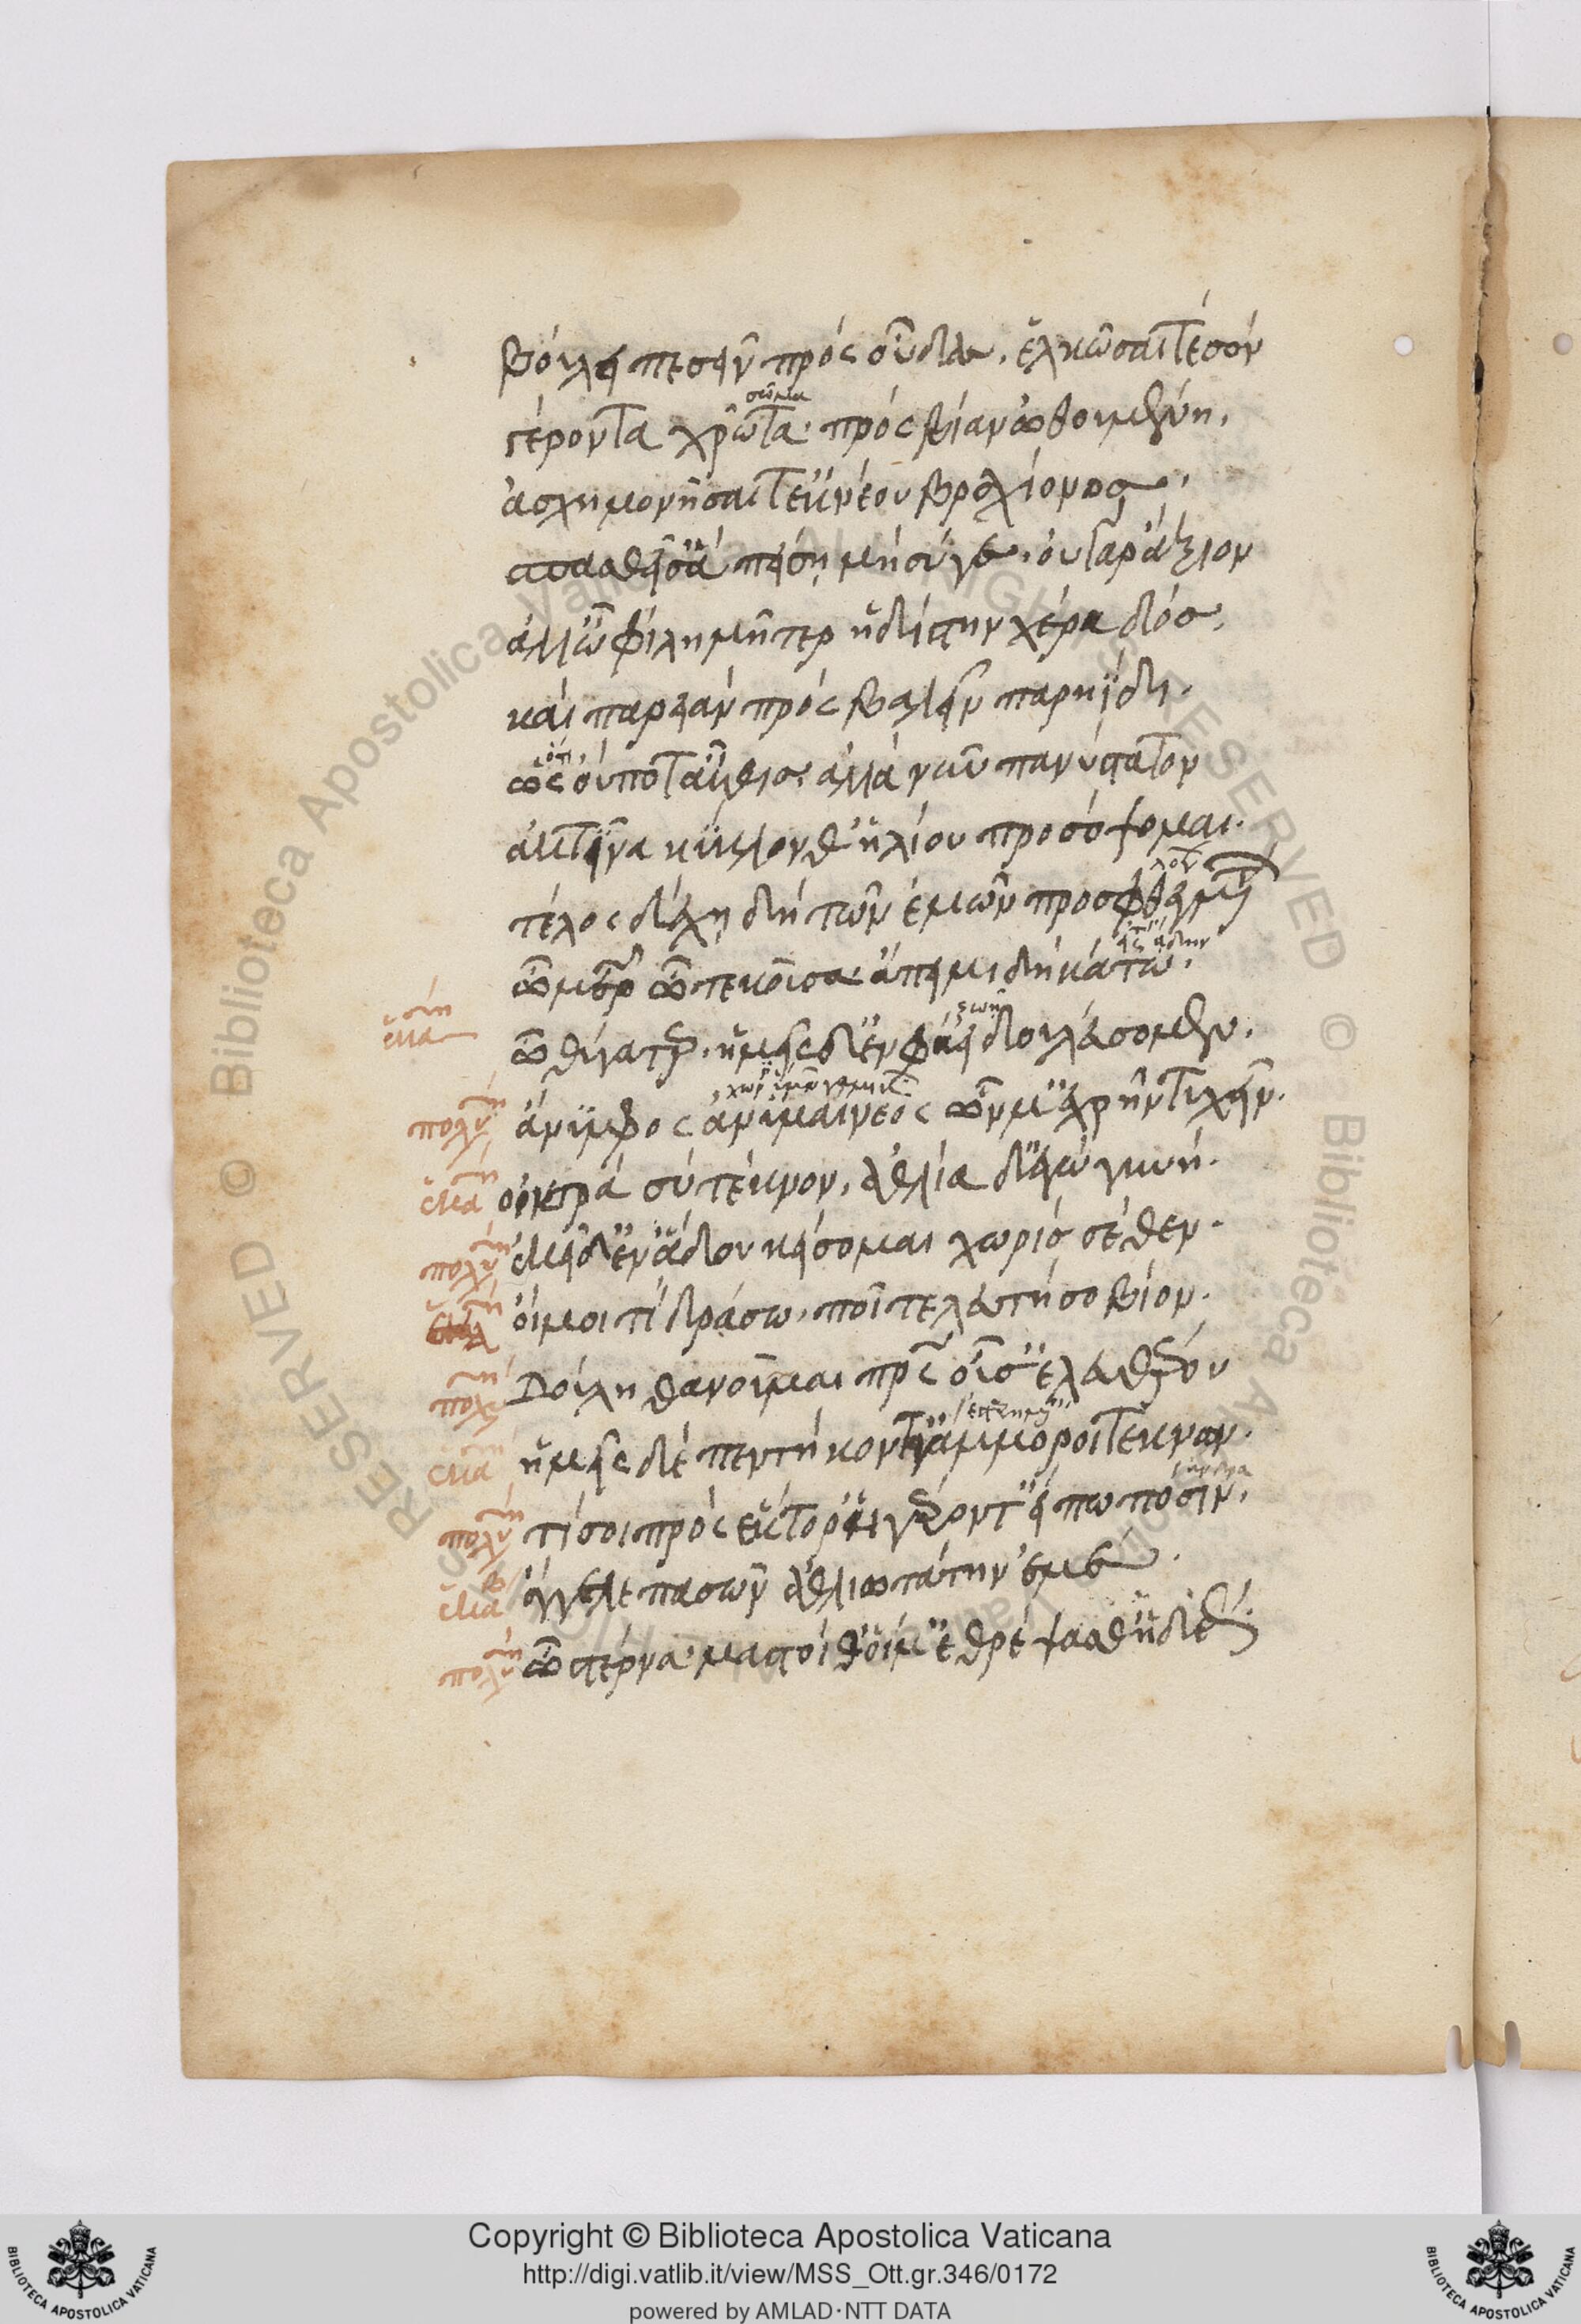 βούλει πεσεῖν πρὸς οὖδας. ἑλκῶσαί τε σὸν
σῶμα
γέροντα χρῶτα· πρὸς βίαν ὠθουμένη.
ἀσχημονῆσαί τ' ἐκ νέου βραχίονος
σπασθεῖσ' ἃ πείσῃ μὴ σύ γε. οὐ γὰρ ἄξιον
ἀλλ' ὦ φίλη μῆτερ ἡδίστην χέρα δός.
καὶ παρειὰν πρὸς βαλεῖν παρηΐδι.
ὅτι
ὡς οὔποτ' αὖθις. ἀλλὰ νῦν πανύστατον
ἀκτῖνα κύκλον θ' ἡλίου προσόψομαι.
τέλος δέχῃ δὴ τῶν ἐμῶν προσφθεγμάτων
εἰς τὸν ᾅδην
ὦ μῆτερ ὦ τεκοῦσα ἄπειμι δὴ κάτω.
ἑκά ζωῇ
ὦ θύγατερ. ἡμεῖς δ' ἐν φάει δουλεύσομεν.
πολυ ἄνυμφος ἀνυμέναιος ὧν μ' ἐχρῆν τυχεῖν.
ἑκά οἰκτρὰ σὺ τέκνον. ἀθλία δ' ἐγὼ γυνή.
πολυ ἐκεῖ δ' ἐν ᾅδου κείσομαι χωρὶς σέθεν.
οἴμοι τί δράσω. ποῖ τελευτήσω βίον.
πολυ δούλη θανοῦμαι πρς οὖσ' ἐλευθέρου
ἑκά ἡμεῖς δὲ πεντήκοντά γ' ἄμμοροι τέκνων.
πολυ τί σοι πρὸς ἕκτορ' ἢ γέροντ' εἴπω πόσιν.
ἑκά ἄγγελλε πασῶν ἀθλιωτάτην ἐμέ
πολυ ὦ στέρνα· μαστοί θ' οἵ μ' ἐθρέψαθ' ἡδέως
Copyright © Biblioteca Apostolica Vaticana
http://digi.vatlib.it/view/MSS_Ott.gr.346/0172
powered by AMLAD·NTT DATA